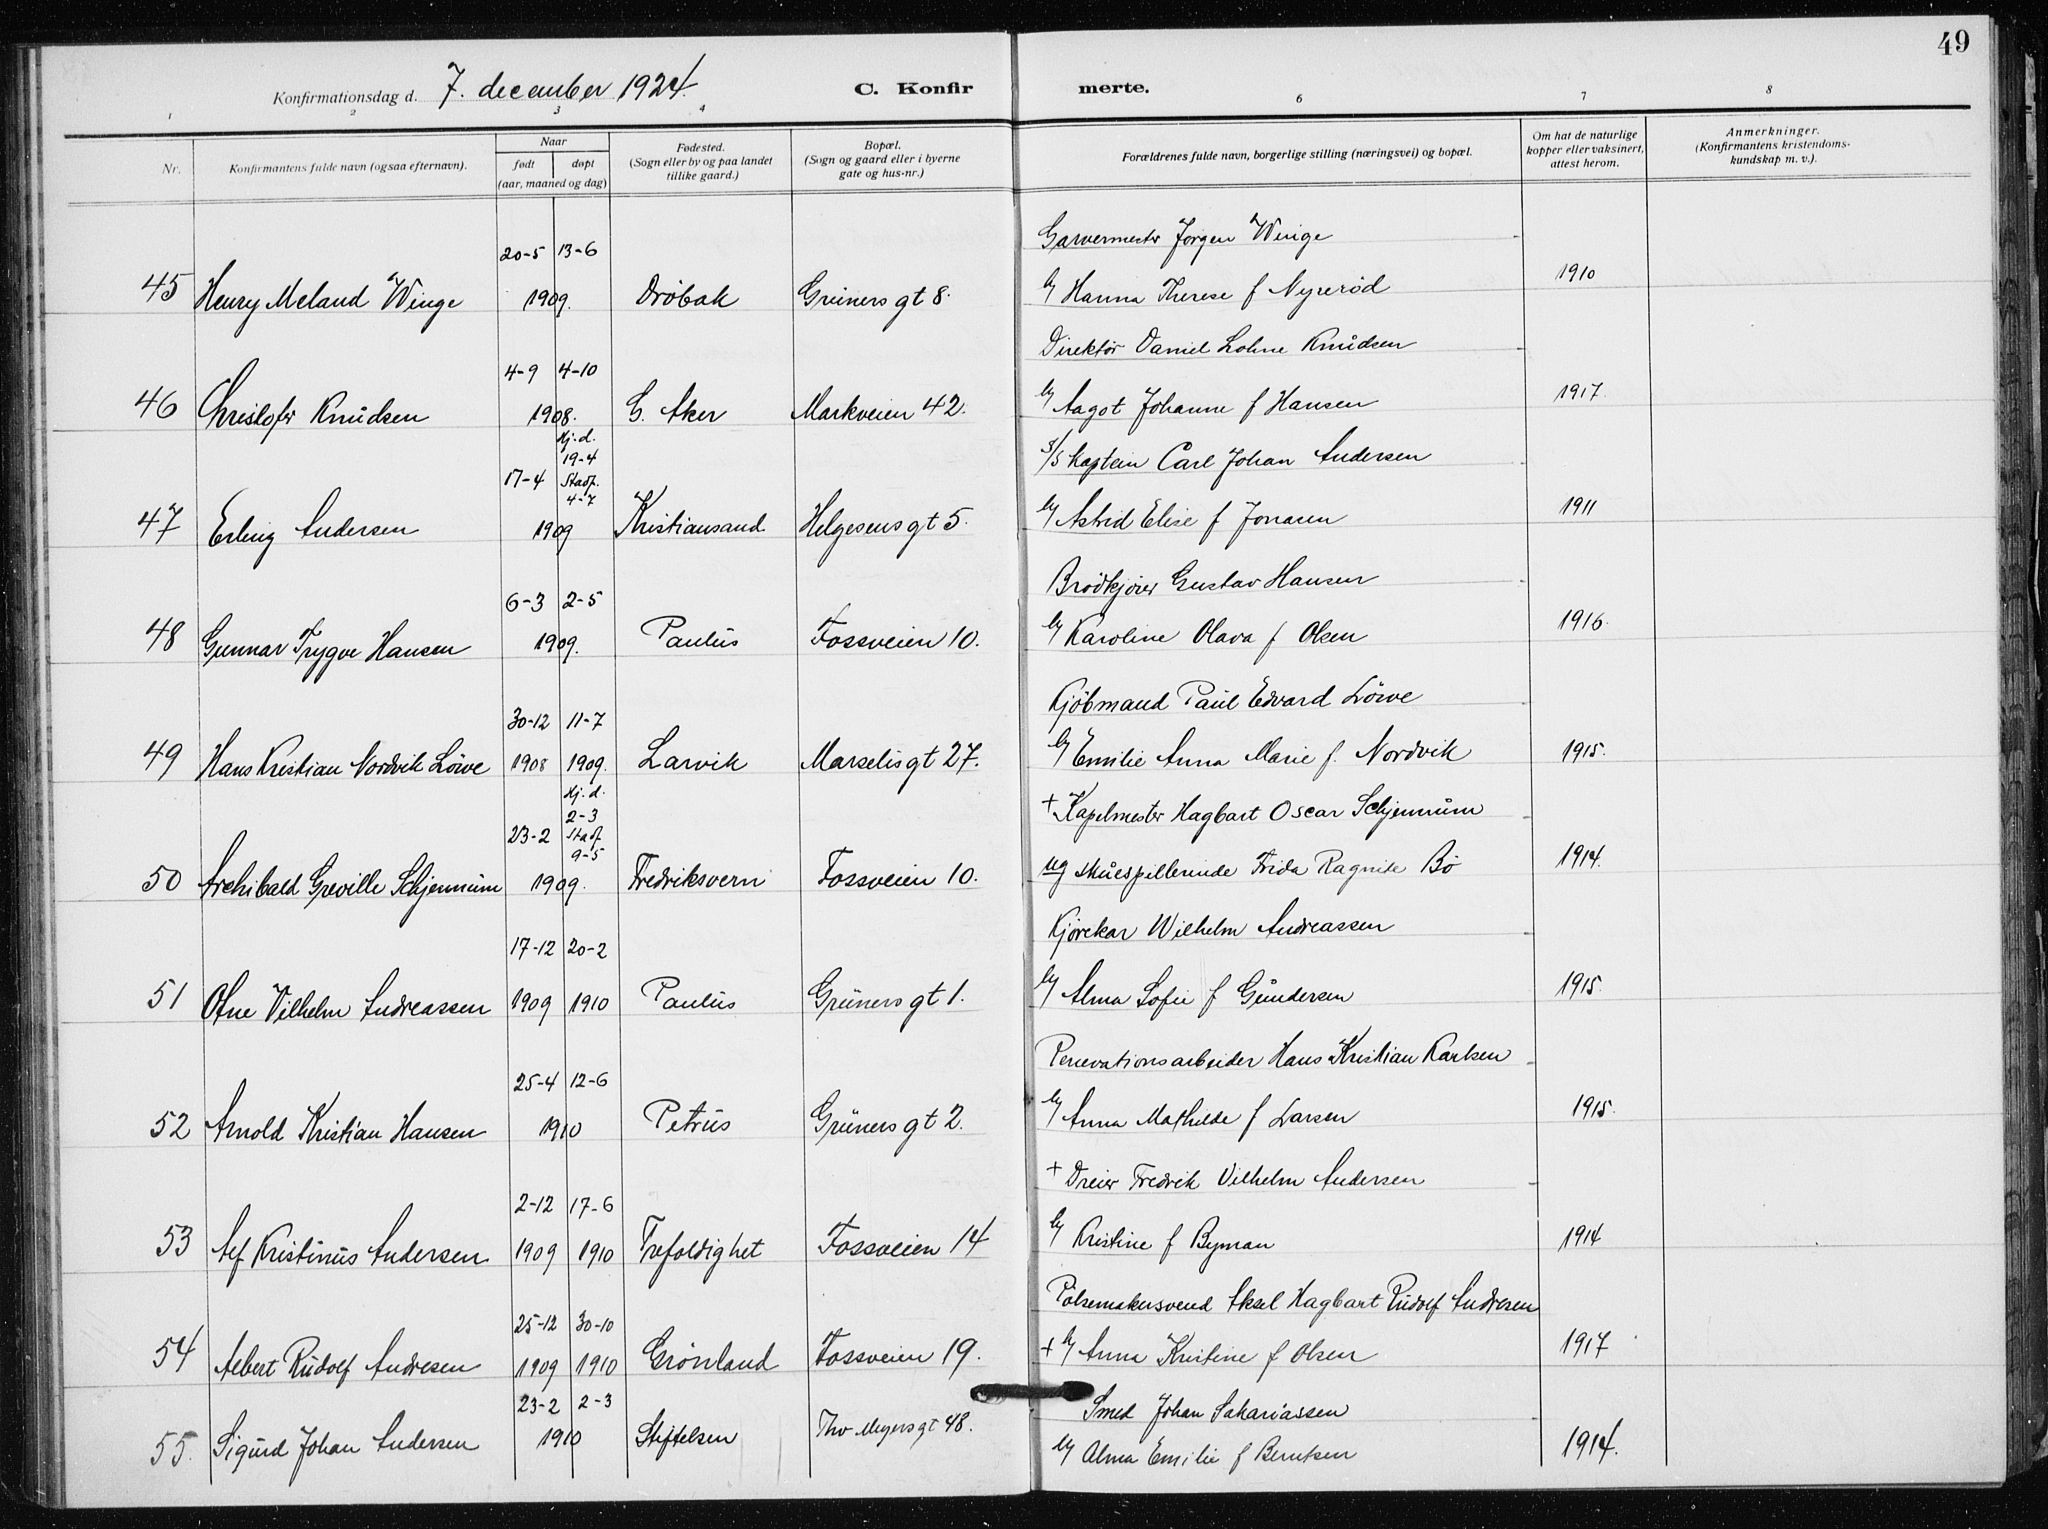 49
Konfirmationsdag d. 7. december 1924. C. Konfir merte.
1 2 3 4 6 7 8
Nr.
Konfirmantens fulde navn (ogsaa efternavn).
Naar
født døpt
(aar, maaned og dag)
Fødested.
(Sogn eller by og paa landet
tillike gaard.)
Bopæl.
(Sogn og gaard eller i byerne
gate og hus-nr.)
Forældrenes fulde navn, borgerlige stilling (næringsvei) og bopæl.
Om hat de naturlige
kopper eller vaksinert,
attest herom.
Anmerkninger.
(Konfirmantens kristendoms-
kundskap m. v.)
Garvermester Jørgen Winge
20-5 13-6
45 Henry Meland Winge 1909. Dröbak Grüners gt 8. Hanna Therese f Nyrerød 1910
Direktör Daniel Lohne Knudsen
4-9 4-10
46 Christofer Knudsen 1908. Aker Markveien 42. Aagot Johanne f Hansen 1917.
Hj.d.
19-4
S/S kaptein Carl Johan Andersen
17-4 Stadf.
4-7
47 Erling Andersen 1909 Kristiansand Helgesens gt 5. Astrid Elise f Jonasen 1911
Brödkjörer Gustav Hansen
6-3 2-5
48 Gunnar Trygve Hansen 1909. Paulus Fossveien 10. Karoline Olava f Olsen 1916.
Kjöbmand Paul Edvard Löwe
30-12 11-7
49 Hans Kristian Nordvik Löwe 1908 1909. Larvik Marselisgt 27. Emilie Anna Marie f. Nordvik 1915.
Hj.d.
2-3
+ Kapelmester Hagbart Oscar Schjennum
23-2 Stadf
9-5
50 Archibald Greville Schjennum 1909. Fredriksvern Fossveien 10. ug skuespillerinde Frida Ragnild Bö 1914.
Kjörekar Wilhelm Andreassen
17-12 20-2
51 Arne Vilhelm Andreassen 1909 1910 Paulus Grüners gt 1. Alma Sofie f Gundersen 1915.
Renovationsarbeider Hans Kristian Karlsen
25-4 12-6
52 Arnold Kristian Hansen 1910 Petrus Grüners gt 2. Anna Mathilde f Larsen 1915.
+ Dreier Fredrik Vilhelm Andersen
2-12 17-6
53 Alf Kristinus Andersen 1909 1910 Trefoldighet Fossveien 14 Kristine f Byman 1914
Pölsemakersvend Aksel Hagbart Rudolf Andresen
25-12 30-10
54 Albert Rudolf Andresen 1909 1910 Grönland Fossveien 19. + Anna Kristine f Olsen 1917
23-2 2-3
Smed Johan Sakariassen
55. Sigurd Johan Andersen 1910 Stiftelsen Thv Meyers gt 48. Alma Emilie f Berntsen 1914.